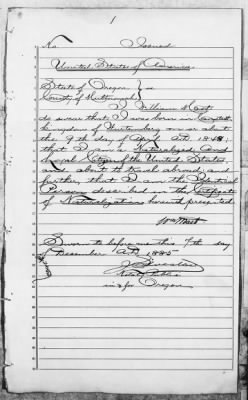 No. Issued
United States of America
State of Oregon } ss
County of Multnomah
I William
do swear that I was born in
Kingdom of Wurtemberg on or about
the 9th day of A.D. 1848,
that I am a Naturalized and
Loyal Citizen of the United States
and about to travel abroad; and
further, that I am the Identical
Person described in the Certificate
of Naturalization herewith presented
Wm
Sworn to before me this 7th day
of December A.D. 1885
Notary Public
in & for Oregon